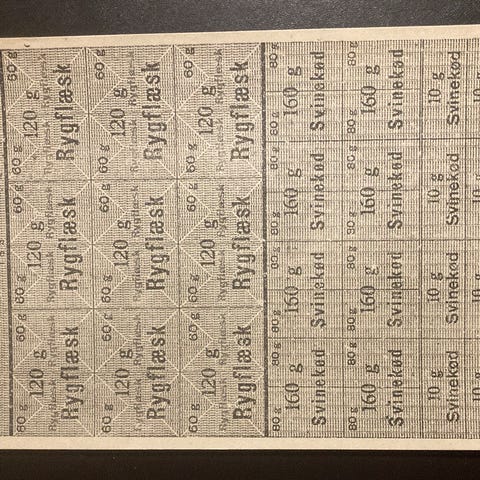 60 g 120 g 60 g 60 g 120 g 60 g 60 g 120 g 60 g
Rygflæsk Rygflæsk Rygflæsk Rygflæsk Rygflæsk Rygflæsk
Rygflæsk Rygflæsk Rygflæsk
60 g 120 g 60 g 60 g 120 g 60 g 60 g 120 g 60 g
Rygflæsk Rygflæsk Rygflæsk Rygflæsk Rygflæsk Rygflæsk
Rygflæsk Rygflæsk Rygflæsk
60 g 120 g 60 g 60 g 120 g 60 g 60 g 120 g 60 g
Rygflæsk Rygflæsk Rygflæsk Rygflæsk Rygflæsk Rygflæsk
Rygflæsk Rygflæsk Rygflæsk
80 g 80 g 80 g 80 g 80 g 80 g 80 g 80 g
160 g 160 g 160 g 160 g
Svinekød Svinekød Svinekød Svinekød
80 g 80 g 80 g 80 g 80 g 80 g 80 g 80 g
160 g 160 g 160 g 160 g
Svinekød Svinekød Svinekød Svinekød
10 g 10 g 10 g 10 g
Svinekød Svinekød Svinekød Svinekød